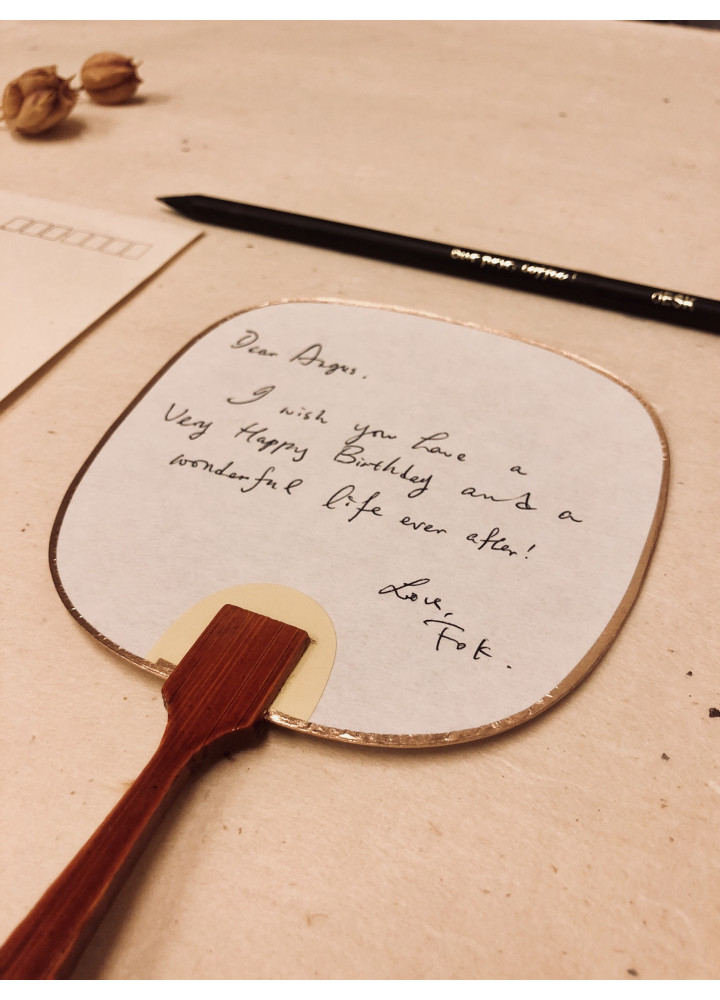 DESK
Dear Argus.
I wish you have a
Very Happy Birthday and a
wonderful life ever after!
Love,
Fok.